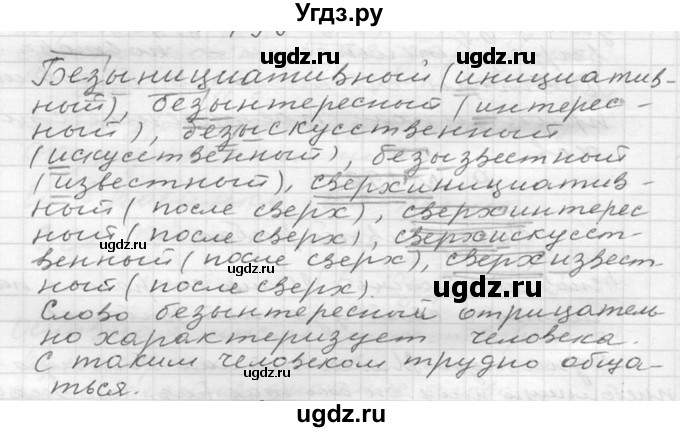 Угдз.ру
Безынициативный (инициатив-
ный), безынтересный (интерес-
ный), безыскусственный
(искусственный), безызвестный
(известный), сверхинициатив-
ный (после сверх), сверхинтерес
ный (после сверх), сверхискусст-
венный (после сверх), сверхизвест-
ный (после сверх).
Слово безынтересный отрицатель
но характеризует человека.
С таким человеком трудно обща-
ться.
ugdz.ru
ugdz.ru
ugdz.ru
ugdz.ru
ugdz.ru
ugdz.ru
ugdz.ru
ugdz.ru
ugdz.ru
ugdz.ru